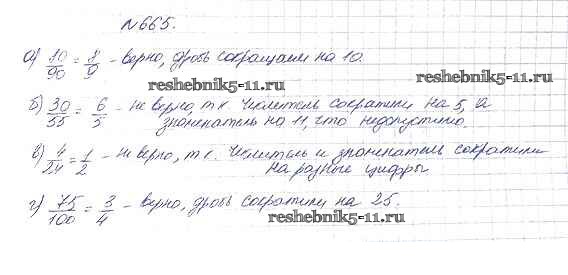 №665.
а) 10/90 = 1/9 - верно, дробь сокращали на 10.
reshebnik5-11.ru
reshebnik5-11.ru
б) 30/55 = 6/5 - не верно, т.к. числитель сократили на 5, а
знаменатель на 11, что недопустимо.
в) 4/24 = 1/2 - не верно, т.к. числитель и знаменатель сократили
на разные цифры.
г) 75/100 = 3/4 - верно, дробь сократили на 25.
reshebnik5-11.ru